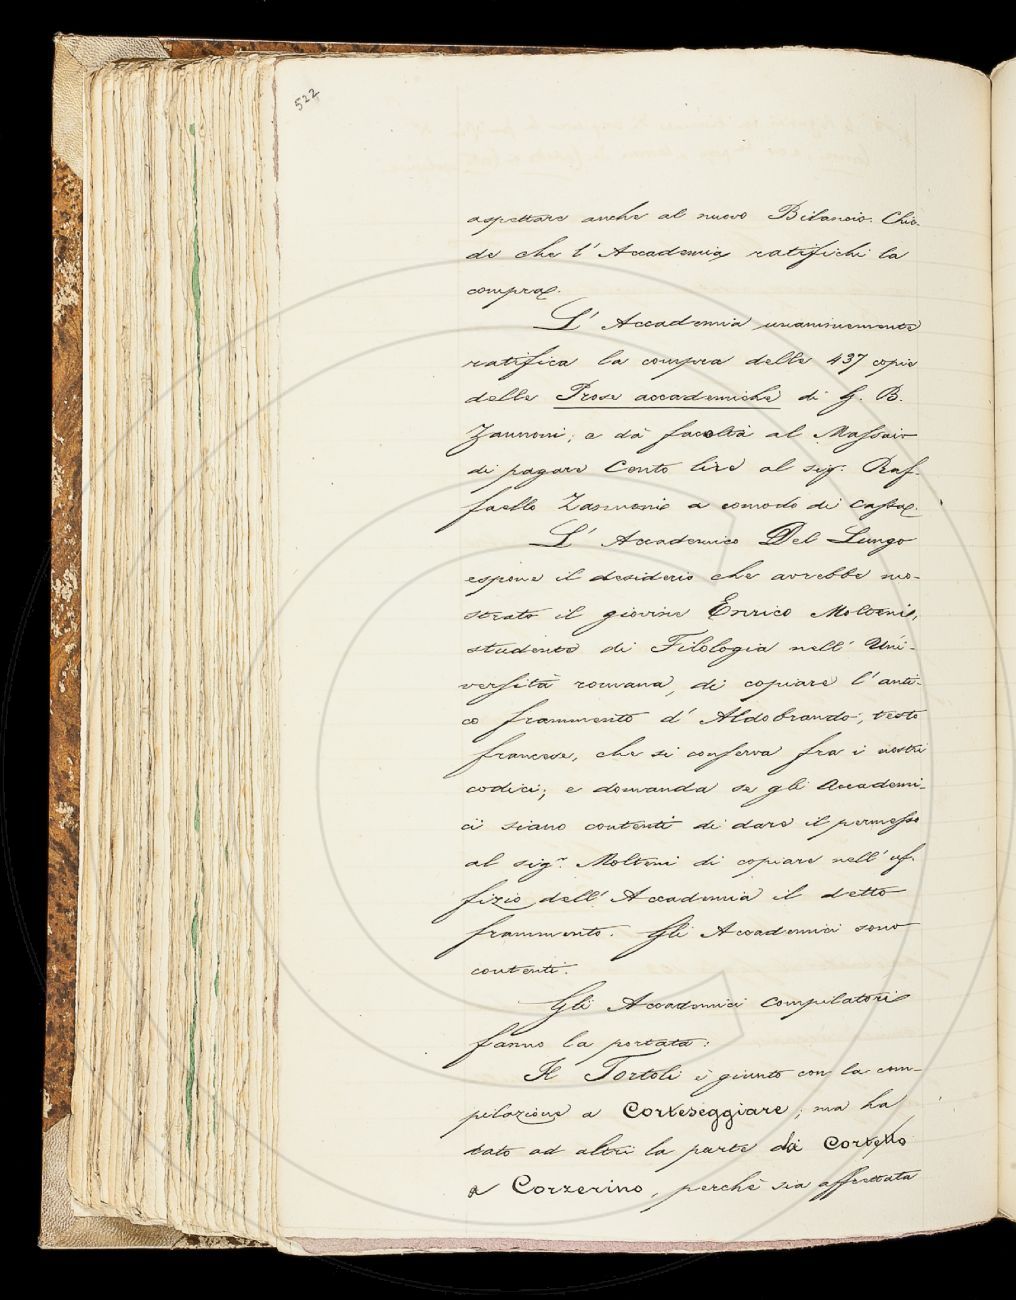 522
aspettare anche al nuovo Bilancio. Chie-
de che l'Accademia ratifichi la
compra.
L'Accademia unanimemente
ratifica la compra delle 437 copie
delle Prose accademiche di G. B.
Zannoni; e dà facoltà al Massaio
di pagare Cento lire al sig. Raf-
faello Zannoni a comodo di Cassa.
L'Accademico Del Lungo
espone il desiderio che avrebbe mo-
strato il giovine Enrico Molteni,
studente di Filologia nell'Uni-
versità romana, di copiare l'anti-
co frammento d'Aldobrando, testo
francese, che si conserva fra i nostri
codici; e domanda se gli Accademi-
ci siano contenti di dare il permesso
al sigr. Molteni di copiare nell'uf-
fizio dell'Accademia il detto
frammento. Gli Accademici sono
contenti.
Gli Accademici Compilatori
fanno la portata:
Il Tortoli è giunto con la com-
pilazione a Corteseggiare; ma ha
dato ad altri la parte da Cortello
a Corzerino, perchè sia affrettata